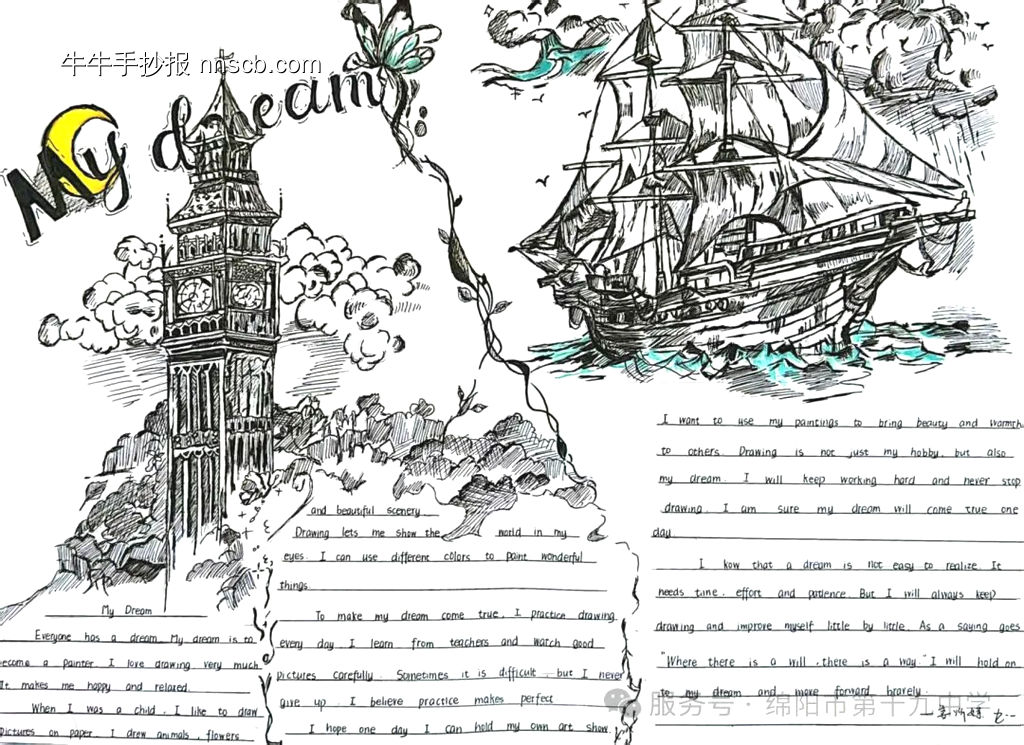 牛牛手抄报 nnscb.com
My dream
My Dream
Everyone has a dream. My dream is to
become a painter. I love drawing very much.
It makes me happy and relaxed.
When I was a child, I like to draw
pictures on paper. I drew animals, flowers
and beautiful scenery
Drawing lets me show the world in my
eyes. I can use different colors to paint wonderful
things.
To make my dream come true, I practice drawing
every day. I learn from teachers and watch good
pictures carefully. Sometimes it is difficult, but I never
give up. I believe practice makes perfect
I hope one day I can hold my own art show.
I want to use my paintings to bring beauty and warmth
to others. Drawing is not just my hobby, but also
my dream. I will keep working hard and never stop
drawing. I am sure my dream will come true one
day.
I kow that a dream is not easy to realize. It
needs time, effort and patience. But I will always keep
drawing and improve myself little by little. As a saying goes
"Where there is a will, there is a way." I will hold on
to my dream and move forward bravely.
服务号·绵阳市第十九中学